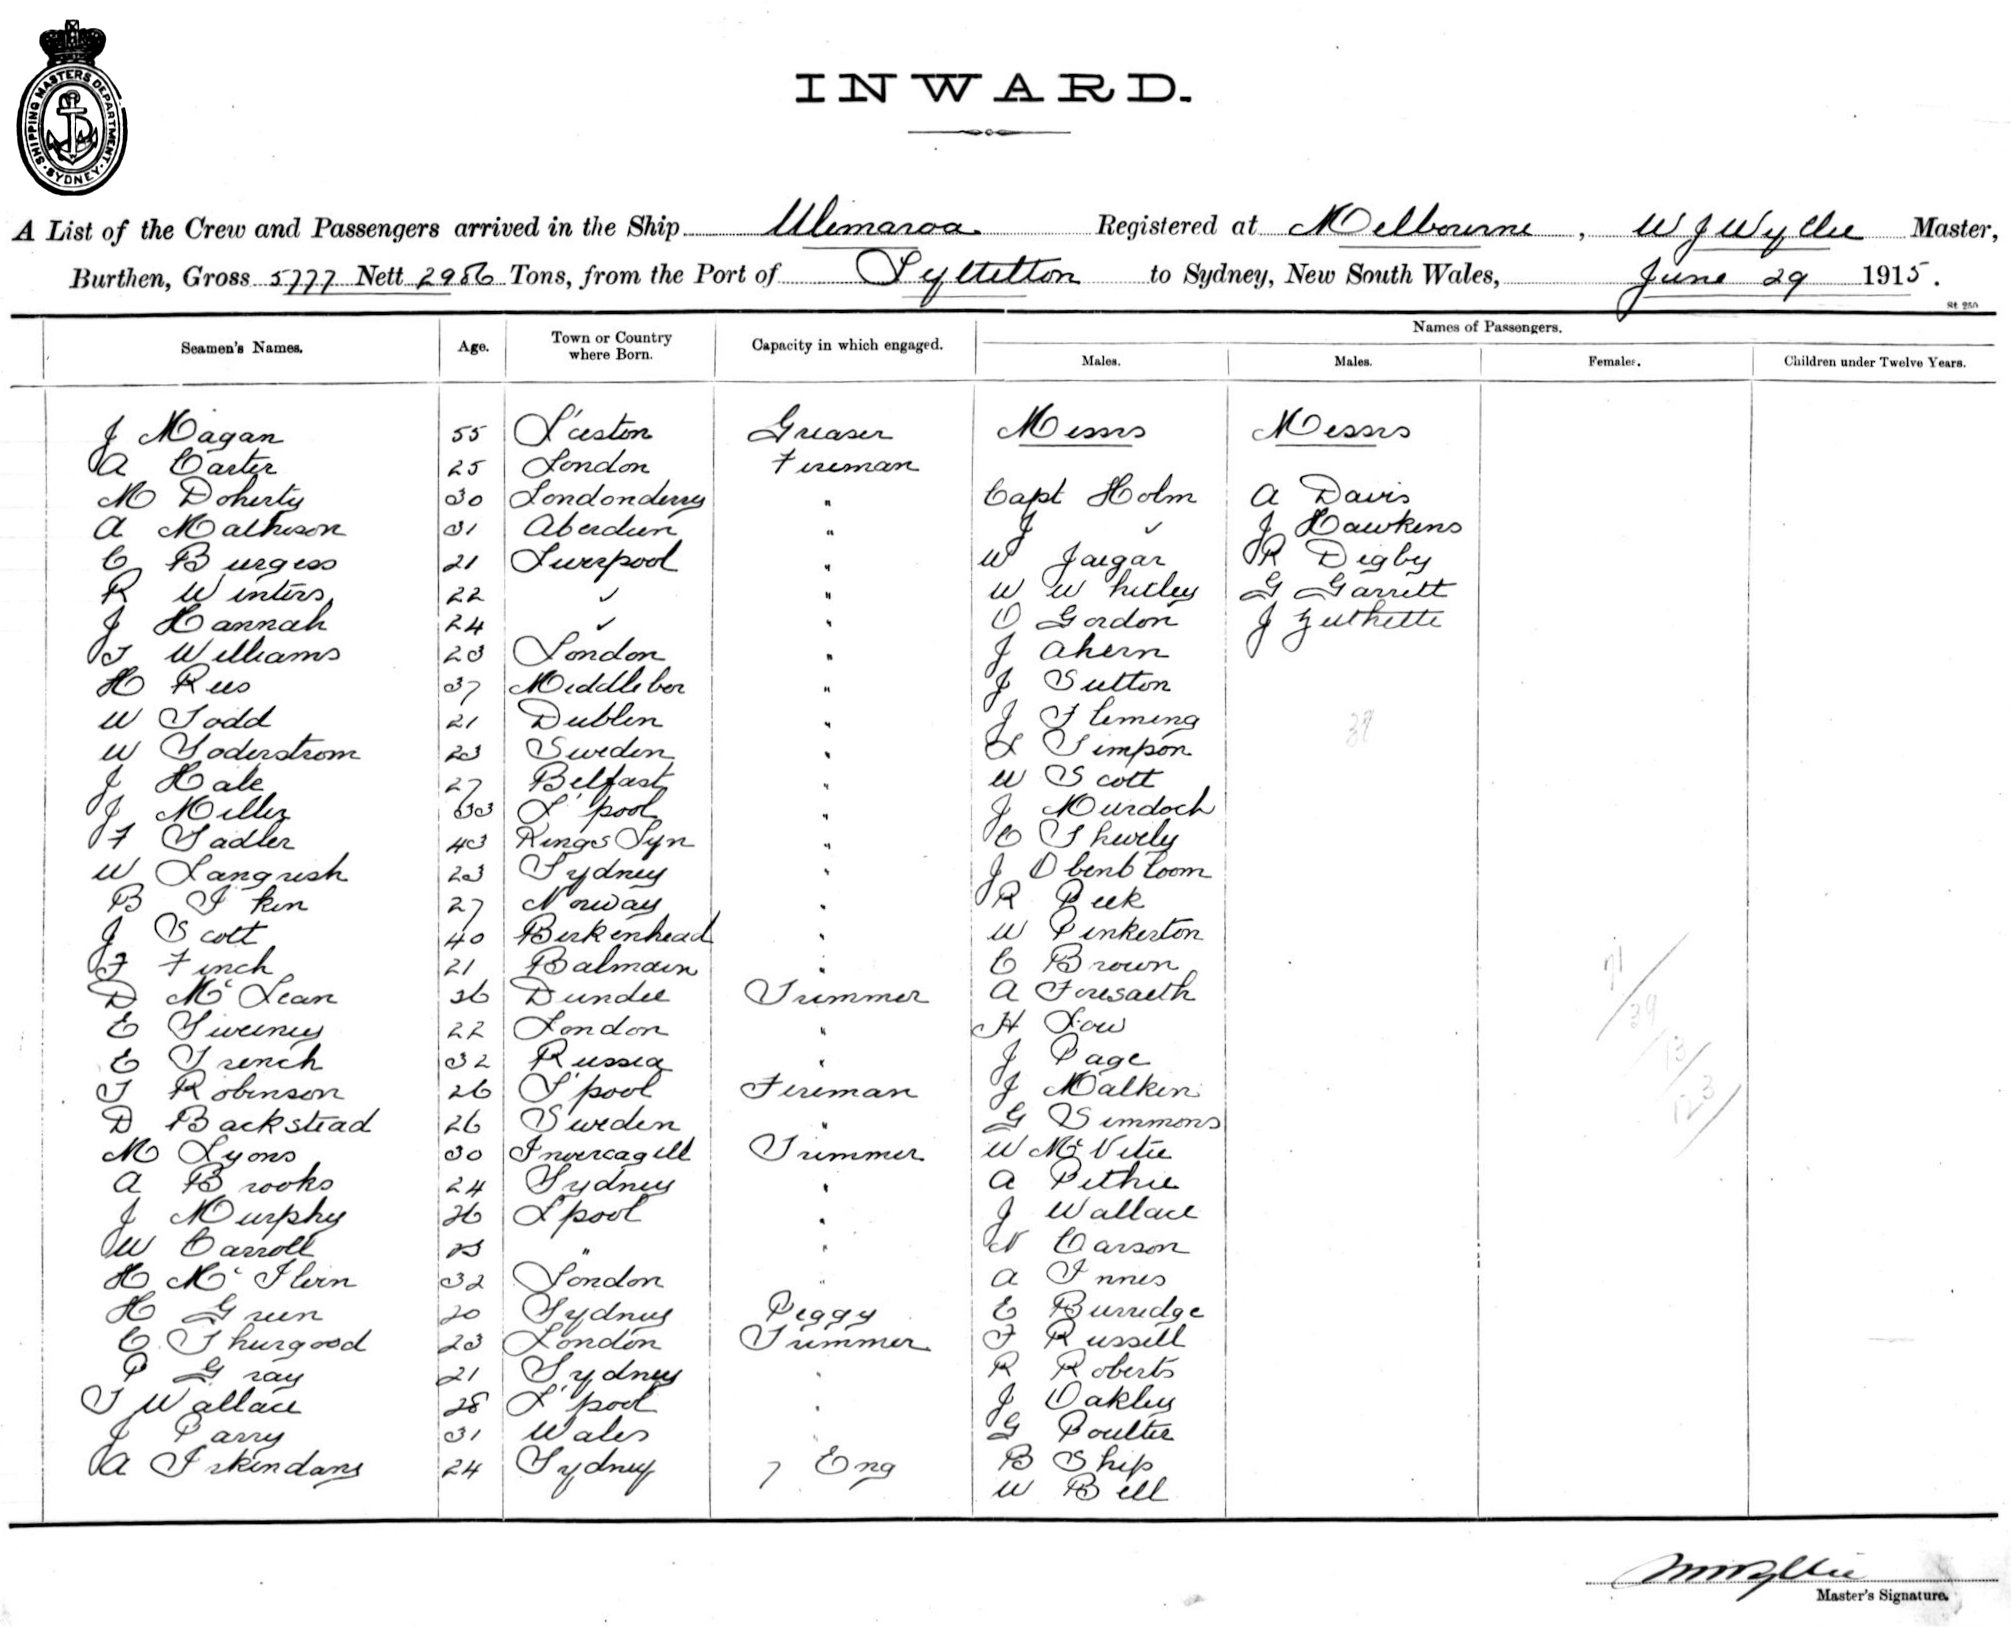 SHIPPING MASTERS DEPARTMENT. SYDNEY.
INWARD.
A List of the Crew and Passengers arrived in the Ship Ulimaroa Registered at Melbourne, W J Wyllie Master,
Burthen, Gross 5777 Nett 2986 Tons, from the Port of Lyttelton to Sydney, New South Wales, June 29 1915.
St. 250
Names of Passengers.
Seamen's Names. Age. Town or Country where Born. Capacity in which engaged. Males. Males. Females. Children under Twelve Years.
J Magan 55 L'ceston Greaser Messrs Messrs
A Carter 25 London Fireman
M Doherty 30 Londonderry " Capt Holm A Davis
A Mathison 31 Aberdeen " J ✓ J Hawkens
C Burgess 21 Liverpool " W Jaegar R Digby
R Winters 22 ✓ " W Whitley G Garrett
J Hannah 24 ✓ " O Gordon J
T Williams 23 London " J Ahern
H Rees 37 Middlebor " J Sutton
W Todd 21 Dublin " J Fleming
W Soderstrom 23 Sweden " L Simpson
J Hale 27 Belfast " W Scott
J Miller 33 L'pool " J Murdoch
F Sadler 43 Kings Lyn " C
W Langrish 23 Sydney " J
B 27 Norway " R Peek
J Scott 40 Birkenhead " W Pinkerton
F Finch 21 Balmain " C Brown
D McLean 26 Dundee Trimmer A
E Sweeney 22 London " H Low
E French 32 Russia " J Page
T Robinson 26 L'pool Fireman J Malkin
D Backstead 26 Sweden " G Simmons
M Lyons 30 Invercagill Trimmer W McVitie
A Brooks 24 Sydney " A Pethie
J Murphy 26 L'pool " J Wallace
W Carroll 25 " " N Carson
H 32 London " A Innes
H Green 20 Sydney Peggy E Burridge
C Thurgood 23 London Trimmer F Russell
P Gray 21 Sydney " R Roberts
T Wallace 28 L'pool " J Oakley
J Parry 31 Wales " G Poulter
A 24 Sydney 7 Eng B Ship
W Bell
71
39
13
123
Master's Signature.